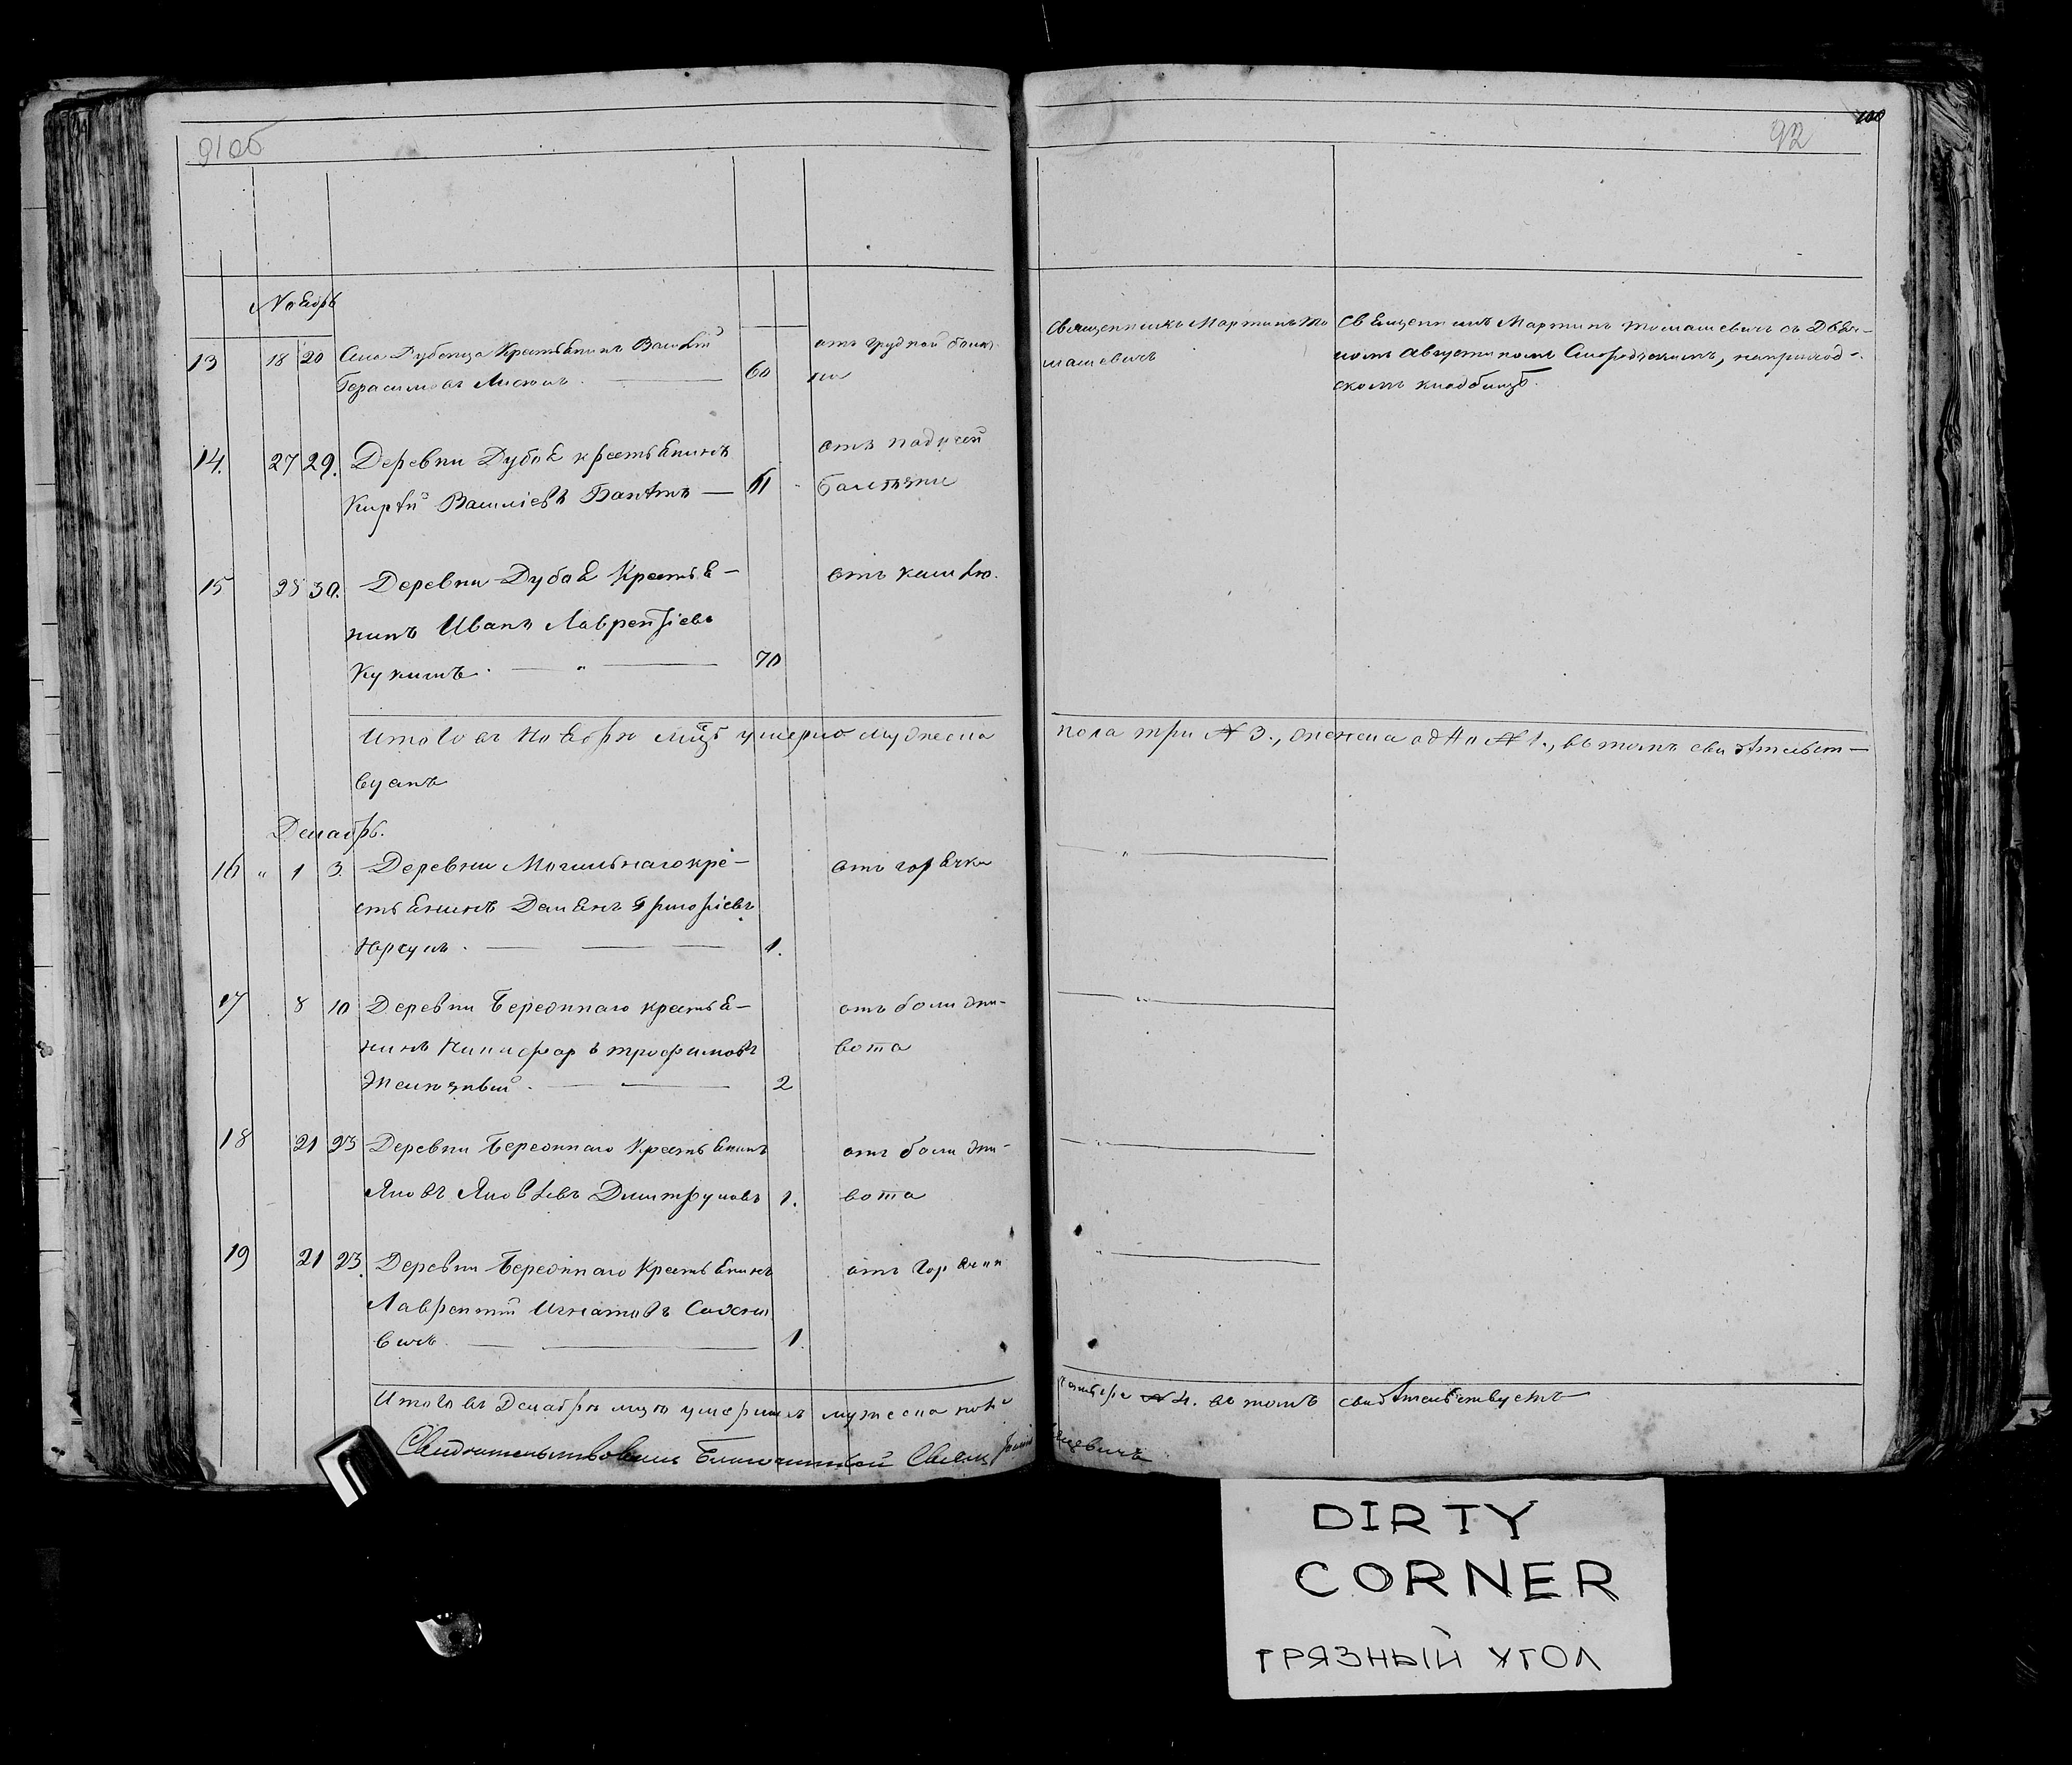 91об
92
100
Ноябрь
13 18 20 Села Дубенца Крестьянинъ Василій
Герасимовъ 60
отъ грудной болѣз
ни
Священникъ Мартинъ То
машевичъ
Священникъ Мартинъ Томашевичъ съ Дья-
комъ Августиномъ, на приход-
скомъ кладбищѣ.
14. 27 29. Деревни Дубоя крестьянинъ
Василіевъ 61
отъ падучей
болѣзни
15 28 30. Деревни Дубоя Крестья-
нинъ Иванъ Лаврентіевъ
70
отъ кашлю.
Итого въ Ноябрѣ мцѣ умерло мужеска пола три № 3., женска одна № 1., въ томъ свидѣтельст-
вуемъ
Декабрь.
16 " 1 3. Деревни Могильнаго кре-
стьянинъ Демьянъ Григоріевъ
1.
отъ горячки
17 8 10 Деревни Бережнаго крестья-
нинъ Трофимовъ
2
отъ боли жи-
вота
18 21 23 Деревни Бережнаго Крестьянинъ
Яковъ Яковлевъ Дмитруковъ 1.
отъ боли жи-
вота
19 21 23. Деревни Бережнаго Крестьянинъ
Лаврентій Игнатовъ
вичъ 1.
отъ горячки
Итого въ Декабрѣ мцѣ умершихъ мужеска пола четыре № 4. въ томъ свидѣтельствуемъ
Свидѣтельствовалъ Благочинный Священ
DIRTY
CORNER
ГРЯЗНЫЙ УГОЛ